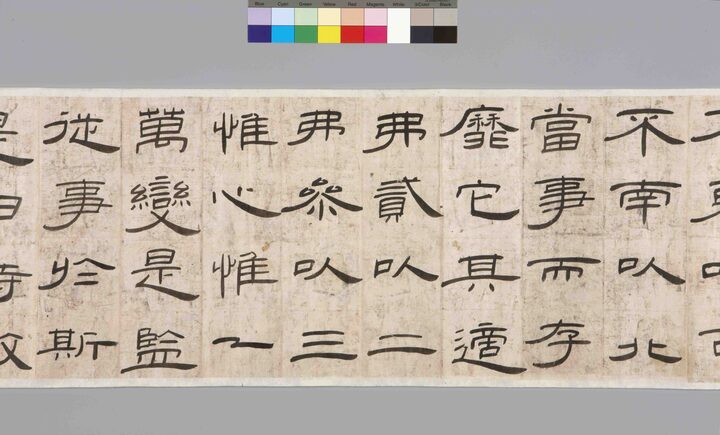 Blue Cyan Green Yellow Red Magenta White 3/Color Black
不南以北
當事而存
靡它其適
弗貳以二
弗參以三
惟心惟一
萬變是監
從事於斯